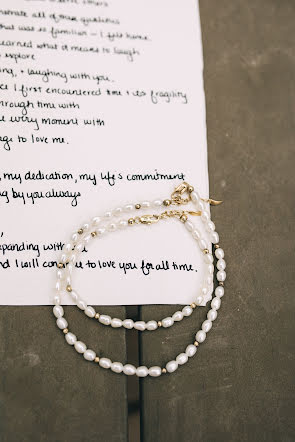 all of these qualities
that was so familiar — I felt home.
learned what it means to laugh
explore
+ laughing with you.
I first encountered time + its fragility
through time with
every moment with
to love me.
, my dedication, my life's commitment
by you always
,
expanding with
and I will continue to love you for all time.